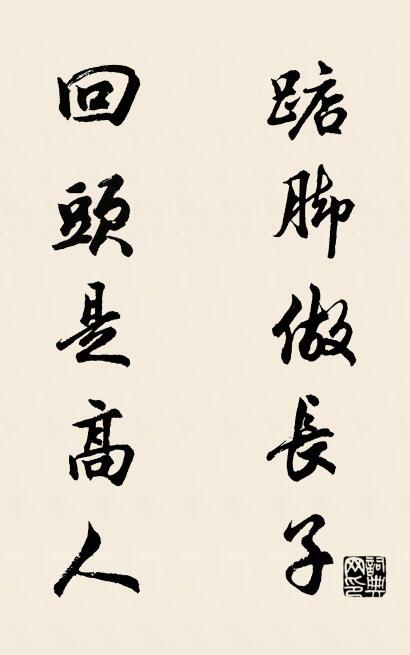 踮脚做長子
回頭是高人
詞典网印